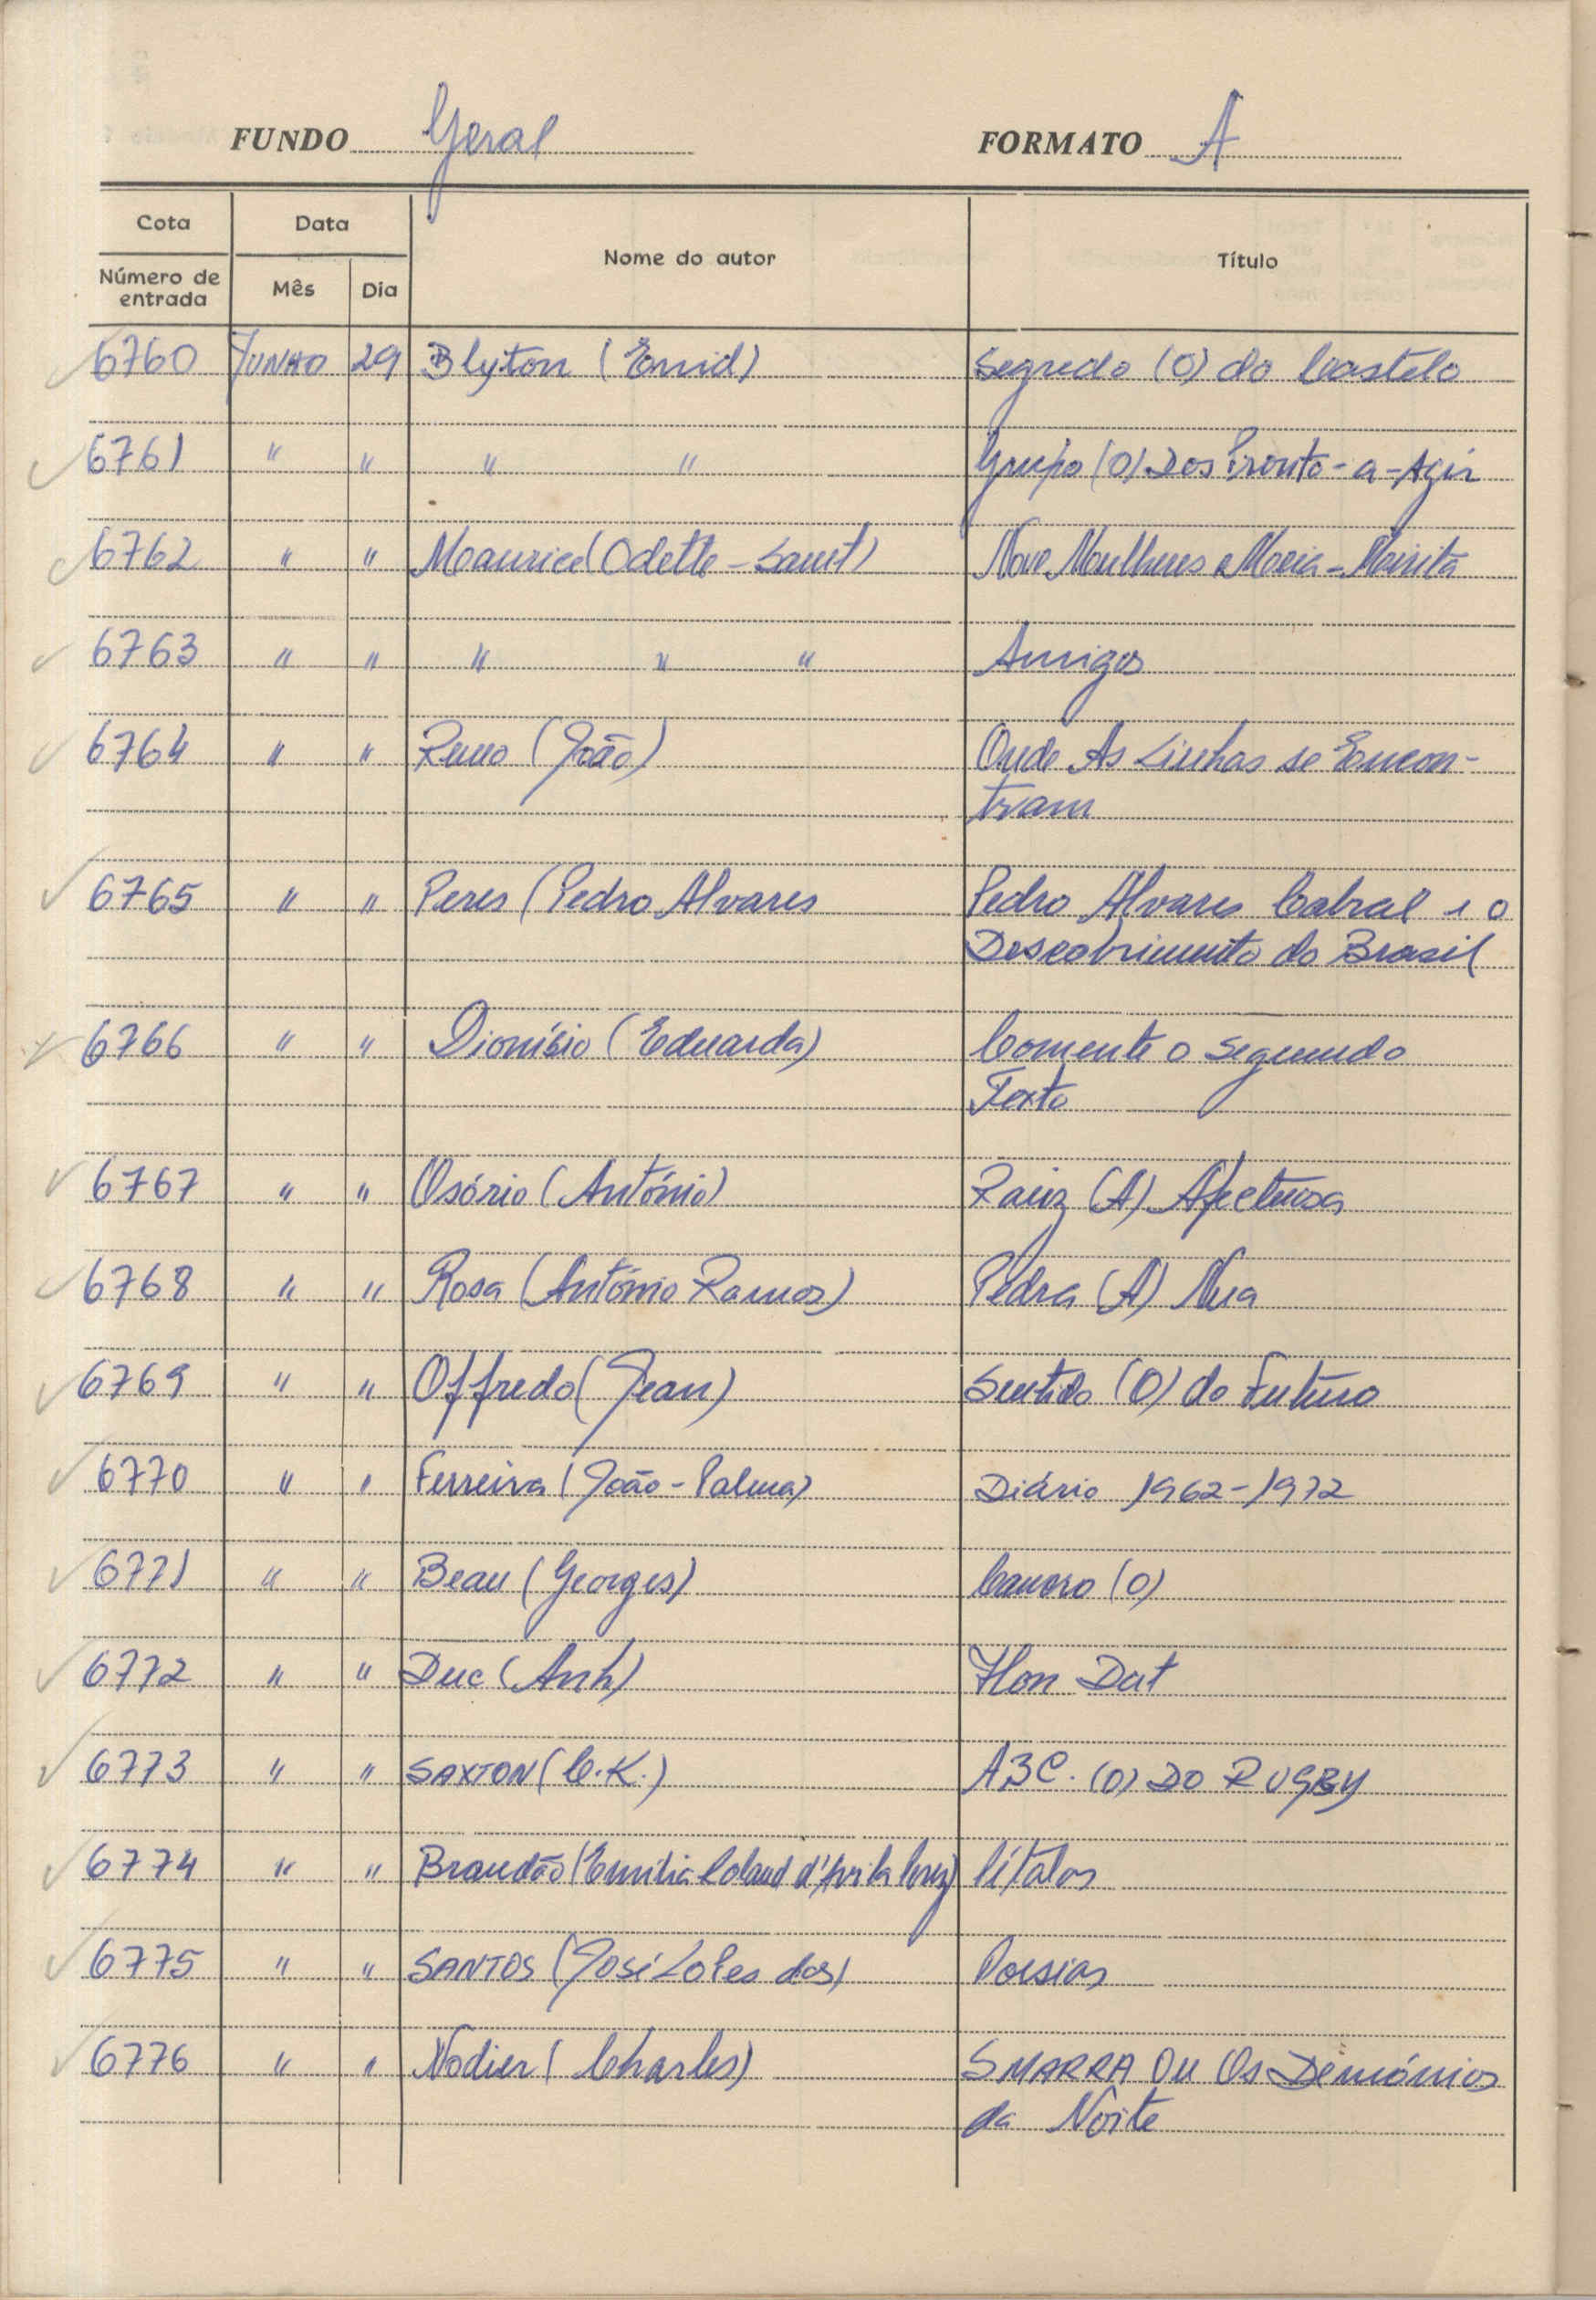 FUNDO Geral FORMATO A
Cota Data Nome do autor Título
Número de entrada Mês Dia
6760 JUNHO 29 Blyton (Enid) Segredo (O) do Castelo
6761 " " " " Grupo (O) Dos Pronto-a-Agir
6762 " " Maurice (Odette-Saint) Nove Mulheres e Meia-
6763 " " " " " Amigos
6764 " " (João) Onde As Linhas se Encon-
tram
6765 " " Peres (Pedro Alvares Pedro Alvares Cabral e o
Descobrimento do Brasil
6766 " " Dionísio (Eduarda) Comente o Seguindo
Texto
6767 " " Osório (António) Raiz (A) Afectuosa
6768 " " Rosa (António Ramos) Pedra (A) Nua
6769 " " Offredo (Jean) Sentido (O) do Futuro
6770 " " Ferreira (João-Palma) Diário 1962-1972
6771 " " Beau (Georges) Cancro (O)
6772 " " Duc (Anh) Hon Dat
6773 " " SAXTON (C.K.) ABC. (O) DO RUGBY
6774 " " Brandão (Emília d'Avila
6775 " " SANTOS (José Lopes dos) Poesias
6776 " " Nodier (Charles) SMARRA OU Os Demónios
da Noite